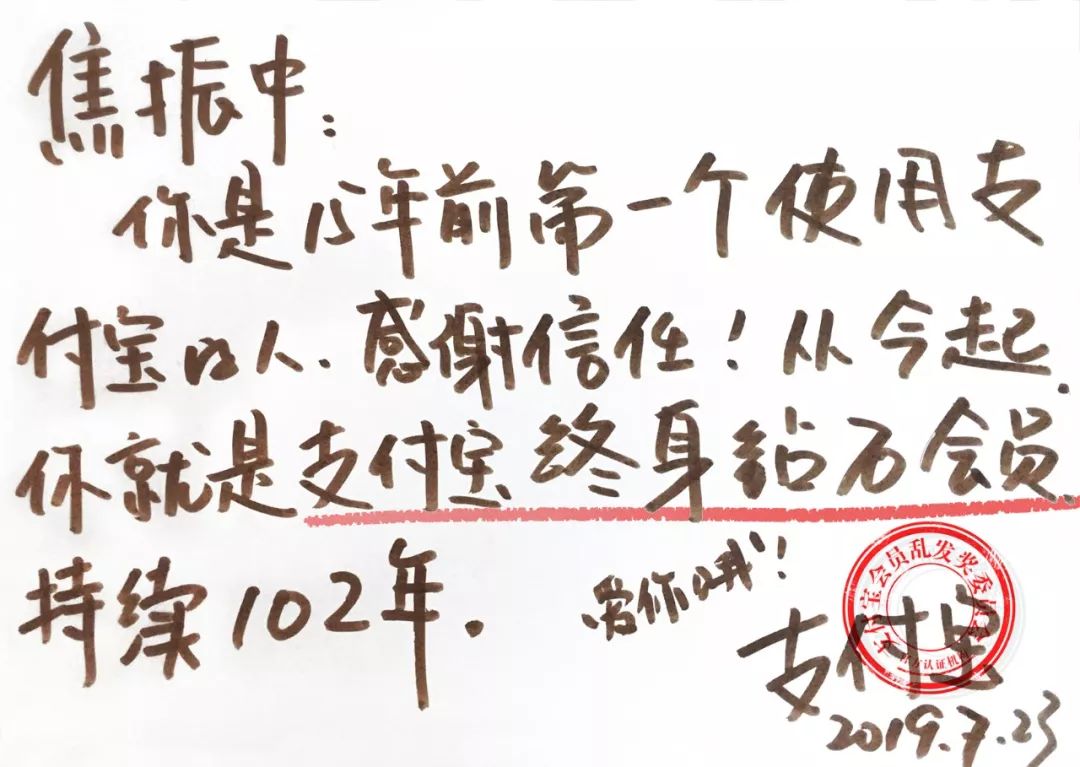 焦振中:
你是15年前第一个使用支
付宝的人.感谢信任!从今起.
你就是支付宝终身钻石会员.
持续102年.
爱你的我!
支付宝会员乱发奖委员会
官方认证机构
支付宝
2019.7.23